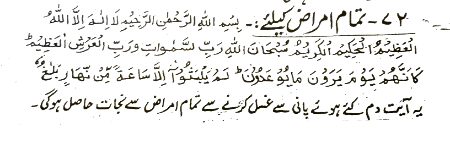 ۷۲ - تمام امراض کیلئے :- بِسْمِ اللهِ الرَّحْمٰنِ الرَّحِيْمِ لَا اِلٰهَ اِلَّا اللهُ
الْعَظِيْمُ الْحَكِيْمُ الْكَرِيْمُ سُبْحَانَ اللهِ رَبِّ السَّمٰوٰتِ وَرَبِّ الْعَرْشِ الْعَظِيْمِ ط
كَاَنَّهُمْ يَوْمَ يَرَوْنَ مَا يُوْعَدُوْنَ لَمْ يَلْبَثُوْٓا اِلَّا سَاعَةً مِّنْ نَّهَارٍ بَلٰغٌ
یہ آیت دم کئے ہوئے پانی سے غسل کرنے سے تمام امراض سے نجات حاصل ہوگی۔